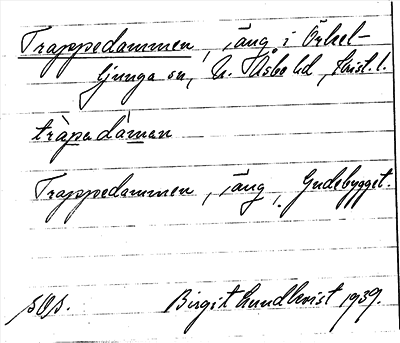 Trappedammen, äng i Örkel-
ljunga sn, N. Åsbo hd, Krist. l.
tràpedàmen
Trappedammen, äng, Gudebygget.
sOs. Birgit Lundkvist 1939.